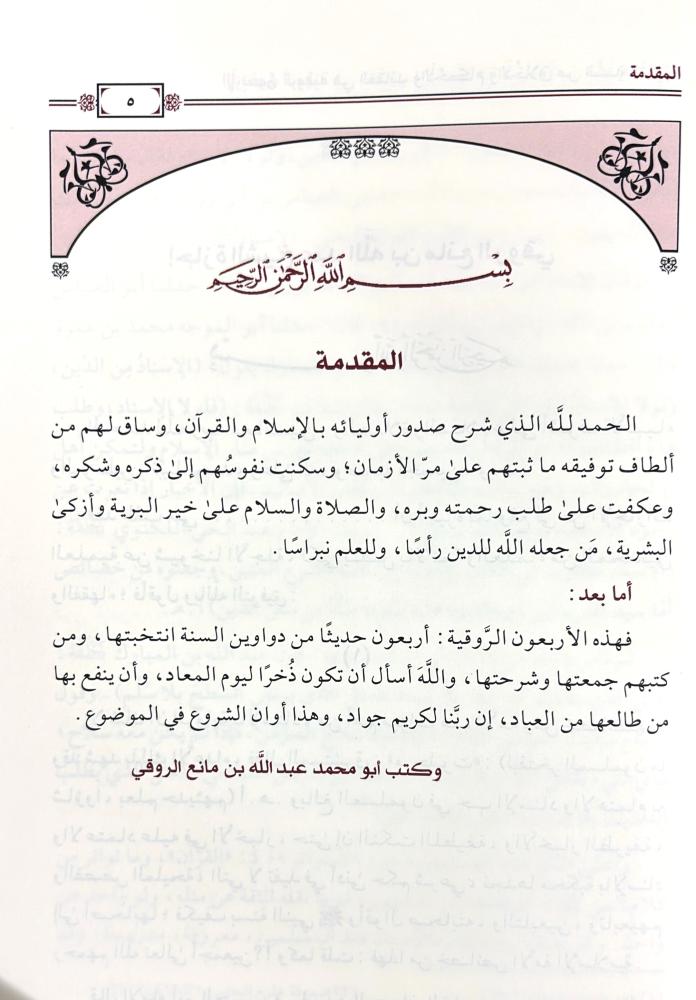 المقدمة
٥
بِسْمِ اللَّهِ الرَّحْمَٰنِ الرَّحِيمِ
المقدمة
الحمد للَّه الذي شرح صدور أوليائه بالإسلام والقرآن، وساق لهم من
ألطاف توفيقه ما ثبتهم علىٰ مرّ الأزمان؛ وسكنت نفوسُهم إلىٰ ذكره وشكره،
وعكفت علىٰ طلب رحمته وبره، والصلاة والسلام علىٰ خير البرية وأزكىٰ
البشرية، مَن جعله اللَّه للدين رأسًا، وللعلم نبراسًا.
أما بعد:
فهذه الأربعون الرَّوقية: أربعون حديثًا من دواوين السنة انتخبتها، ومن
كتبهم جمعتها وشرحتها، واللَّهَ أسأل أن تكون ذُخرًا ليوم المعاد، وأن ينفع بها
من طالعها من العباد، إن ربَّنا لكريم جواد، وهذا أوان الشروع في الموضوع.
وكتب أبو محمد عبد اللَّه بن مانع الروقي